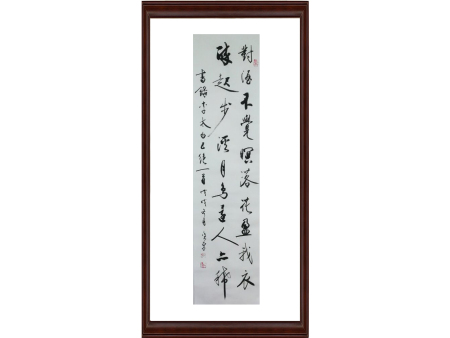 對酒不覺暝落花盈我衣
醉起步溪月鳥還人亦稀
書錄李太白五絕一首